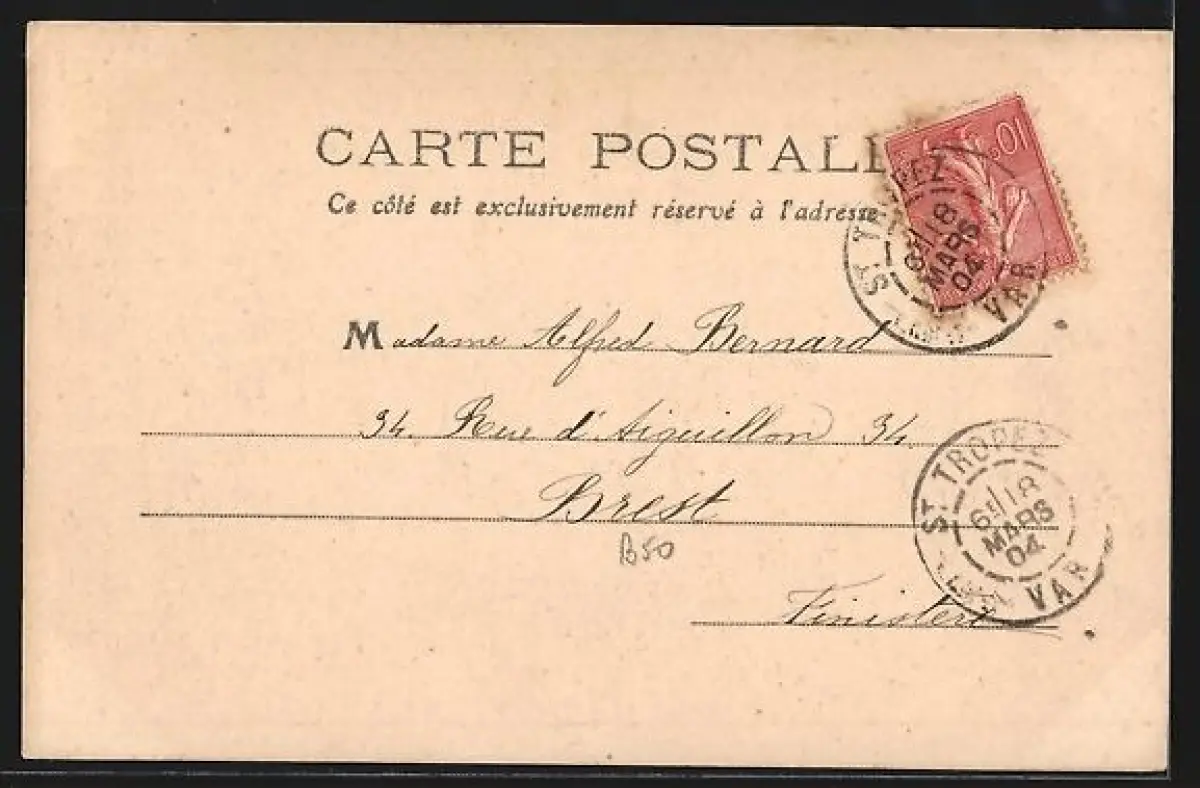 CARTE POSTALE
Ce côté est exclusivement réservé à l'adresse
10c
ST TROPEZ
6E/18
MARS
04
VAR
Madame Alfred Bernard
34. Rue d'Aiguillon 34.
Brest
B50
Finistere
ST TROPEZ
6E/18
MARS
04
VAR